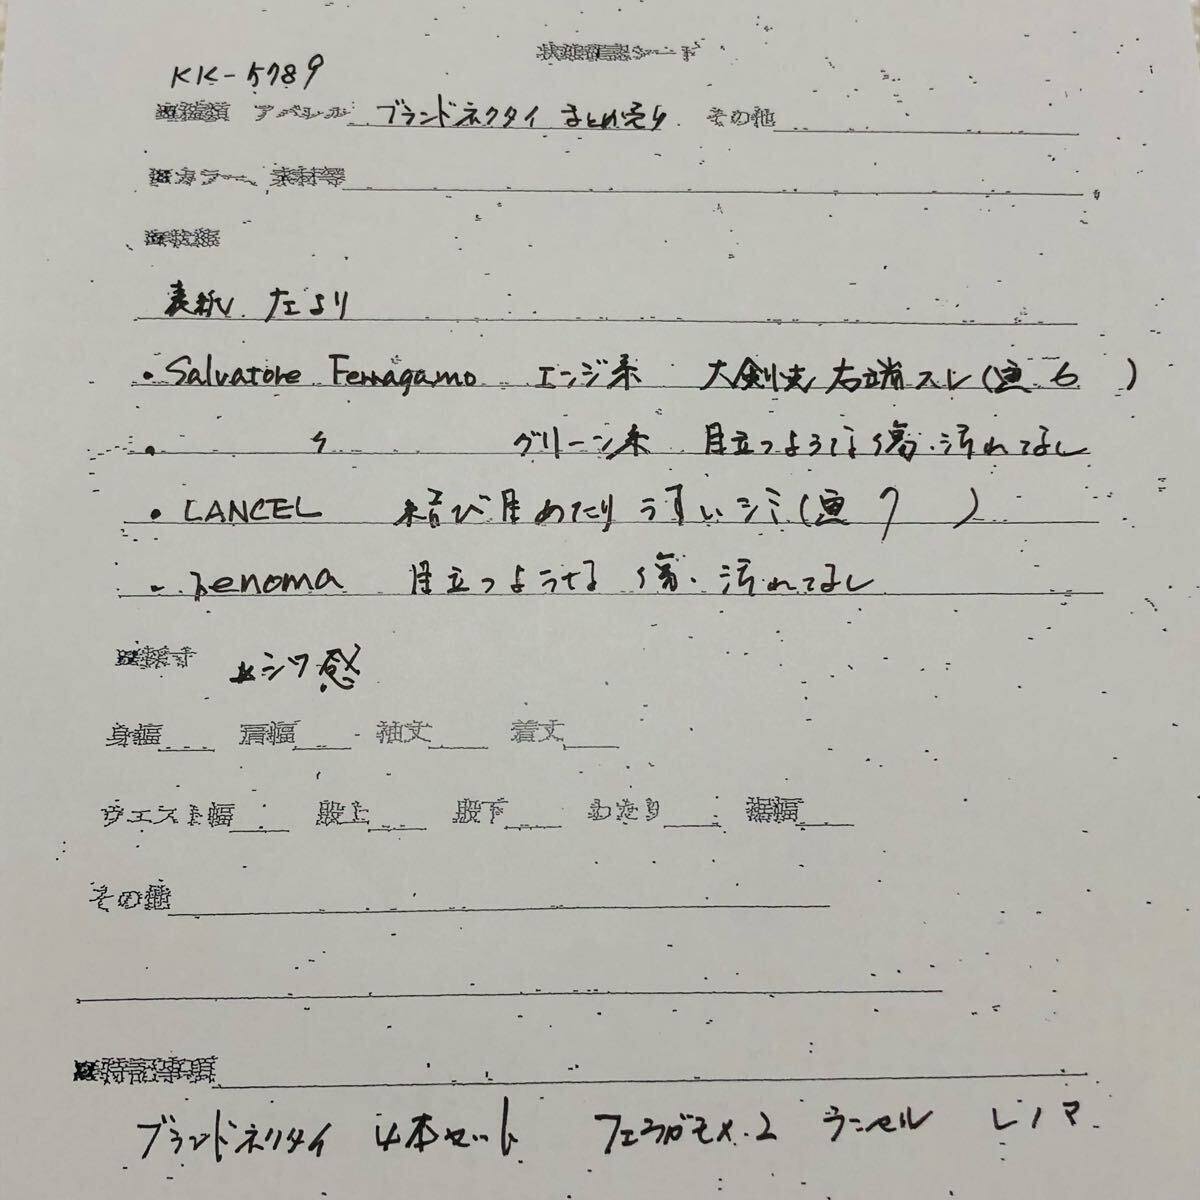 状態確認シート
KK-5789
■種類 アパレル ブランドネクタイ まとめ売り その他
■カラー、素材等
■状態
表紙、左より
・Salvatore Ferragamo エンジ系 大剣先 右端スレ(画6 )
・ 〃 グリーン系 目立つような傷・汚れてなし
・LANCEL 結び目あたり うすいシミ(画7 )
・renoma 目立つような 傷・汚れてなし
■採寸 シワ感
身幅 肩幅 袖丈 着丈
ウエスト幅 股上 股下 わたり 裾幅
その他
■特記事項
ブランドネクタイ 4本セット フェラガモ×2 ランセル レノマ